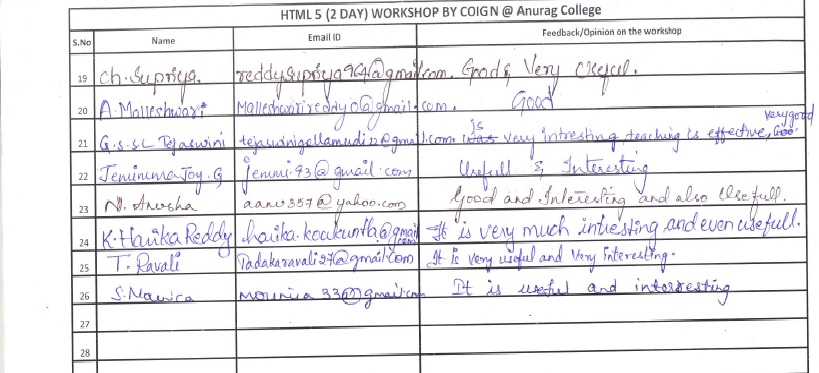 HTML 5 (2 DAY) WORKSHOP BY COIGN @ Anurag College
S.No Name Email ID Feedback/Opinion on the workshop
19 Ch. Supriya. Good & Very Useful.
20 A. Malleshwari Malleshwarireddy10@gmail.com. Good
21 G.S.S.L Tejaswini is very intresting, teaching is effective, very good
22 Jemimma Joy. G jemmi.93@gmail.com Usefull & Interesting
23 N. Anusha aanu357@yahoo.com Good and Interesting and also Usefull.
24 K. Harika Reddy harika.koukuntla@gmail.com It is very much intresting and even usefull.
25 T. Ravali Tadakaravali27@gmail.com It is very useful and Very interesting.
26 S. Mounica mounica 33@gmail.com It is useful and interesting
27
28